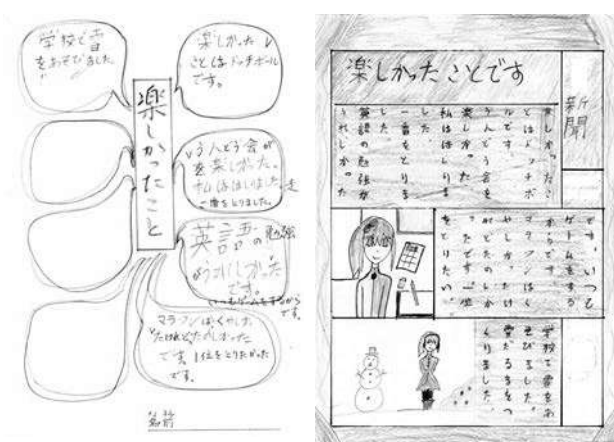 学校で雪
をあそびました
楽しかった
ことはドッチボール
です。
楽しかったこと
うんどう会が
を楽しかった。
私ははしりました
走
一番をとりました。
英語の勉強
がうれしかった
です。
いつもゲームをするから
です。
マラソンはくやしか
ったけれどたのしかった
です。1位をとりたかった
です。
名前
楽しかったことです
新聞
楽しかったこ
とはドッチボ
ールです。
うんどう会を
楽しかった
私ははしりま
した。
一番をとりま
した
英語の勉強が
うれしかった
です。いつも
ゲームをする
からです。
マラソンはく
やしかったけ
どたのしか
ったです一位
をとりたい。
学校で雪をあ
そびました。
雪だるまをつ
くりました。